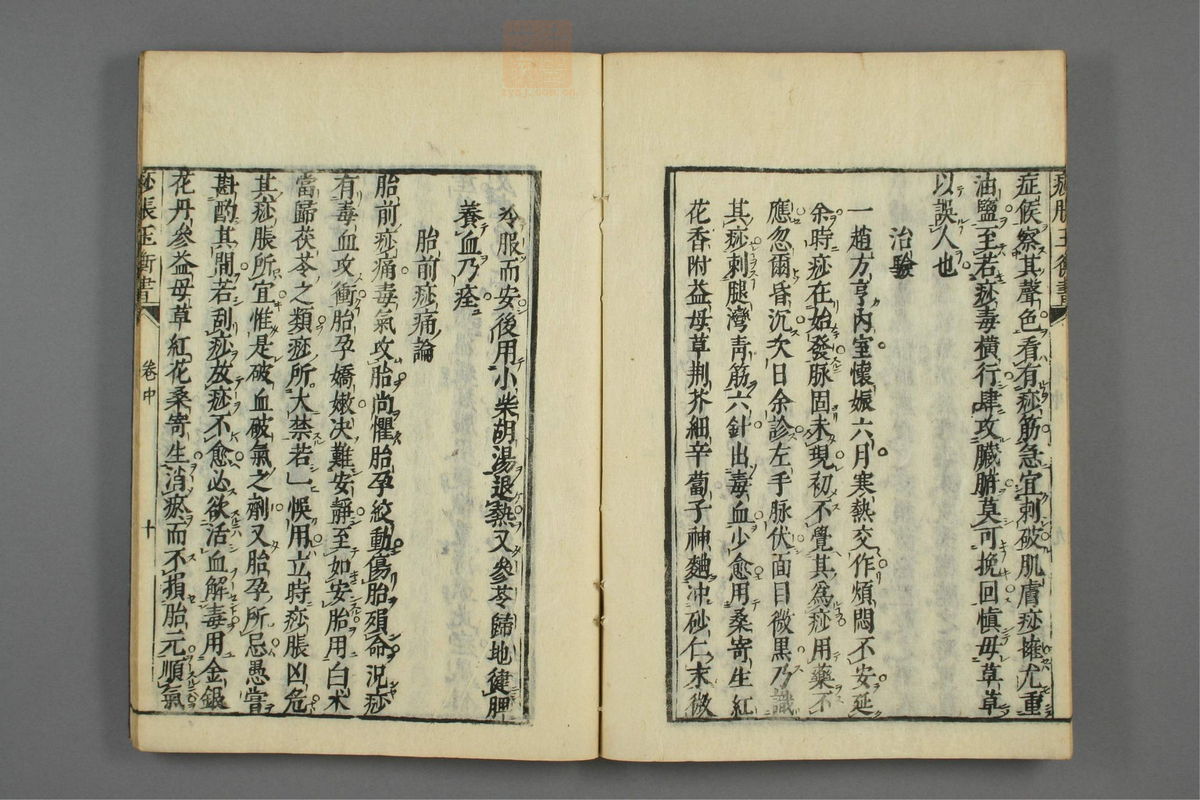 痧脹玉衡書
症候察其聲色看有痧筋急宜刺破肌膚痧擁尤重
油鹽至若痧毒橫行肆攻臟腑莫可挽回慎毋草草
以誤人也
治驗
一趙方亨內室懷娠六月寒熱交作煩悶不安延
余時痧在始發脉固未現初不覺其為痧用藥不
應忽爾昏沉次日余診左手脉伏面目微黑乃識
其痧刺腿灣青筋六針出毒血少愈用桑寄生紅
花香附益母草荆芥細辛蔔子神麯冲砂仁末微
冷服而安後用小柴胡湯退熱又參苓歸地健脾
養血乃痊
胎前痧痛論
胎前痧痛毒氣攻胎尚懼胎孕絞動傷胎殞命况痧
有毒血攻衝胎孕嬌嫩决難安靜至如安胎用白朮
當歸茯苓之類痧所大禁若一悞用立時痧脹凶危
其痧脹所宜惟是破血破氣之劑又胎孕所忌愚嘗
斟酌其間若刮痧放痧不愈必欲活血解毒用金銀
花丹參益母草紅花桑寄生消瘀而不損胎元順氣
痧脹玉衡書
卷中
十